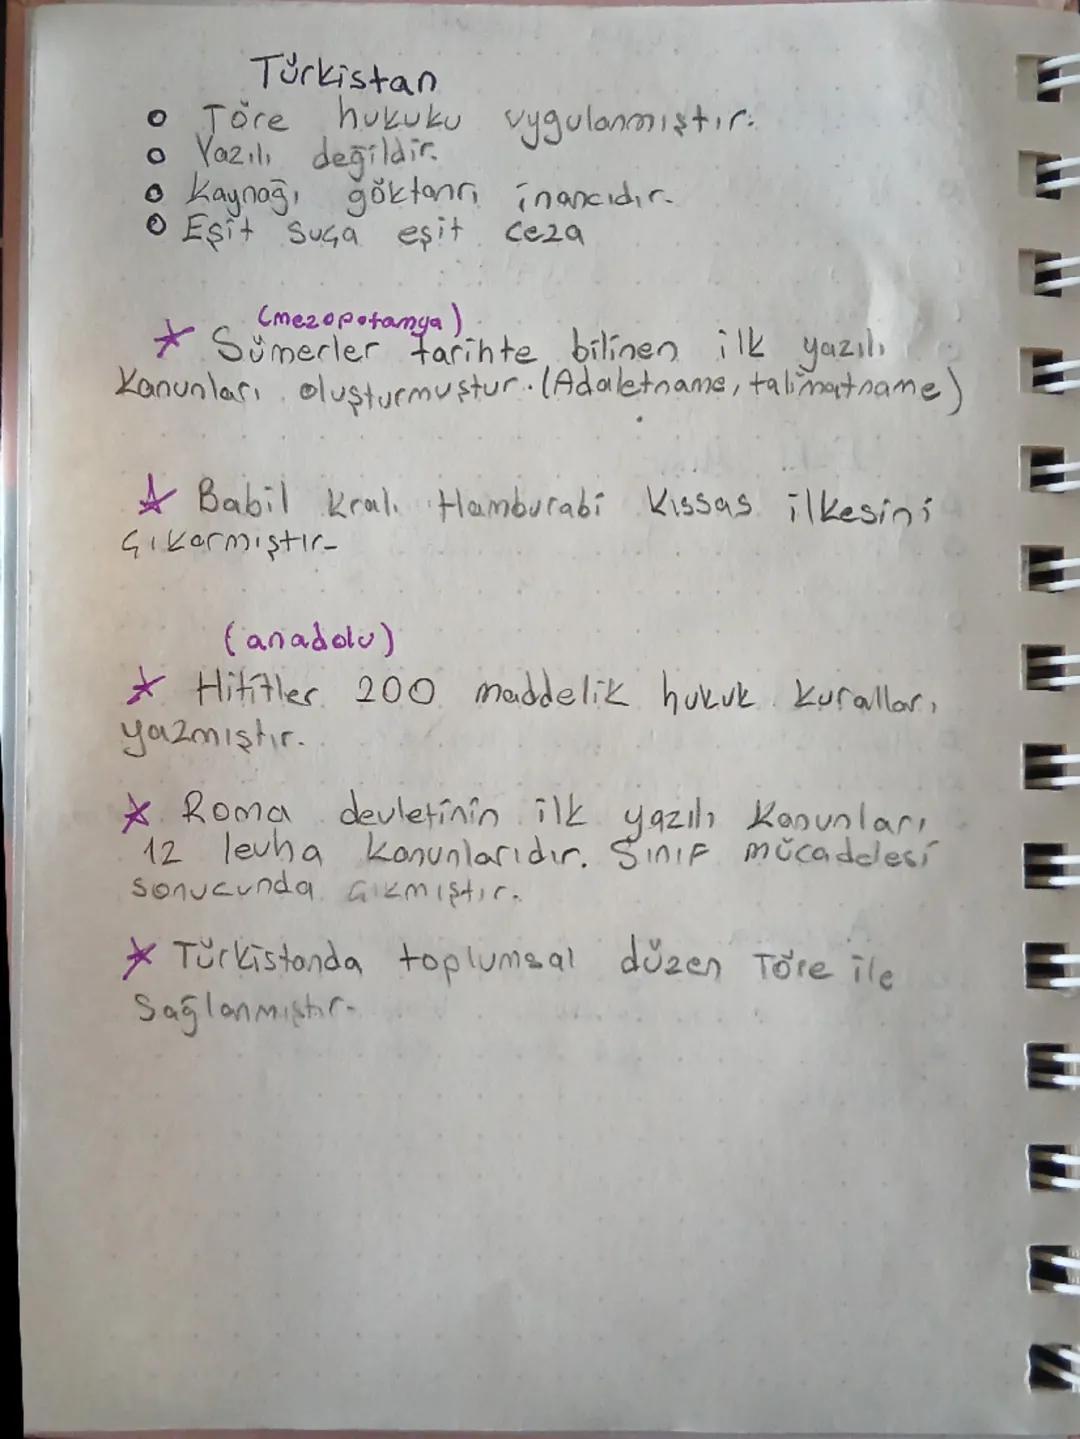 Türkistan
Töre hukuku uygulanmıştır.
Yazılı değildir.
Kaynağı göktanrı inancıdır.
Eşit suça eşit ceza
(mezopotamya)
Sümerler tarihte bilinen ilk yazılı
Kanunları oluşturmuştur. (Adaletname, talimatname)
Babil Kralı Hamburabi Kıssas ilkesini
çıkarmıştır.
(anadolu)
Hititler 200 maddelik hukuk kuralları
yazmıştır.
Roma devletinin ilk yazılı Kanunları
12 levha kanunlarıdır. Sınıf mücadelesi
sonucunda çıkmıştır.
Türkistanda toplumsal düzen Töre ile
Sağlanmıştır.